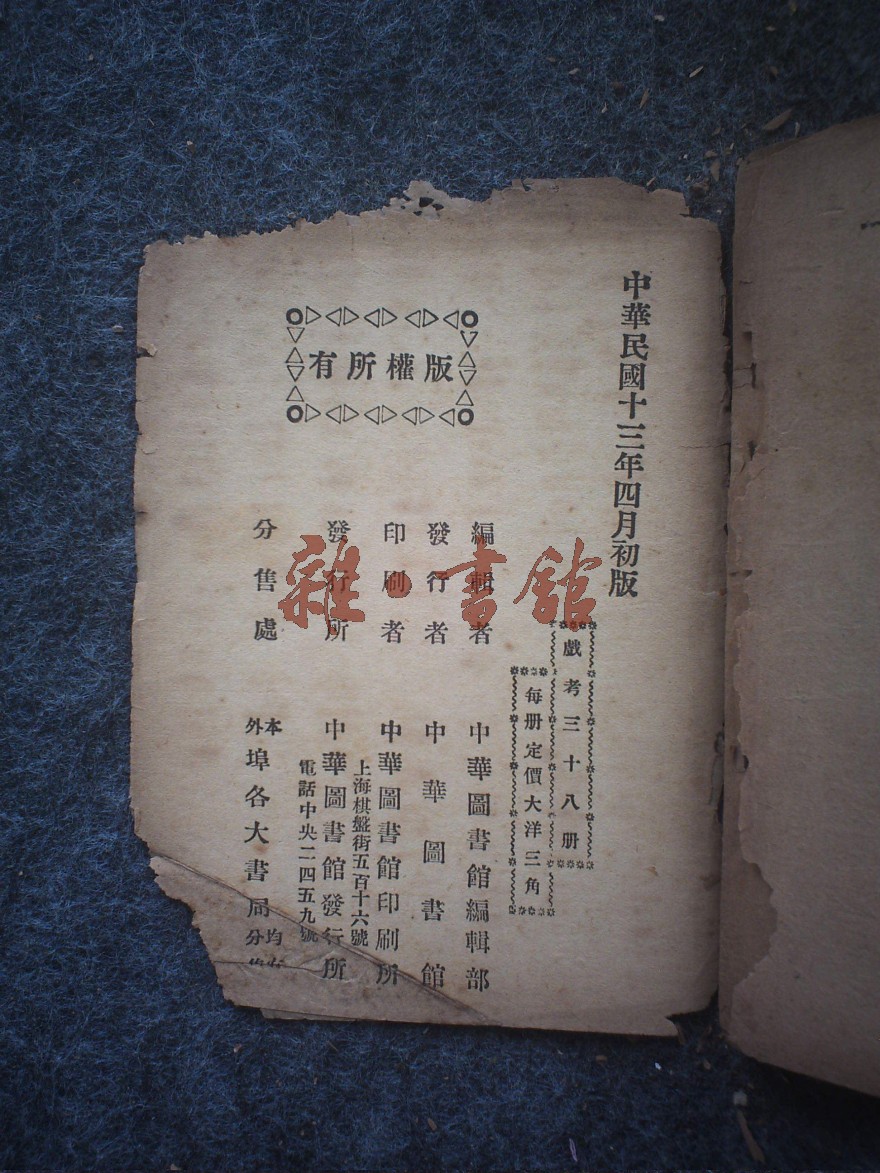 中華民國十三年四月初版
戲考三十八册
每册定價大洋三角
版權所有
編輯者 中華圖書館編輯部
發行者 中華圖書館
印刷者 中華圖書館印刷所
上海棋盤街五百十六號
發行所 中華圖書館發行所
電話中央二四五九號
分售處 本外埠各大書局均分
雜·書館